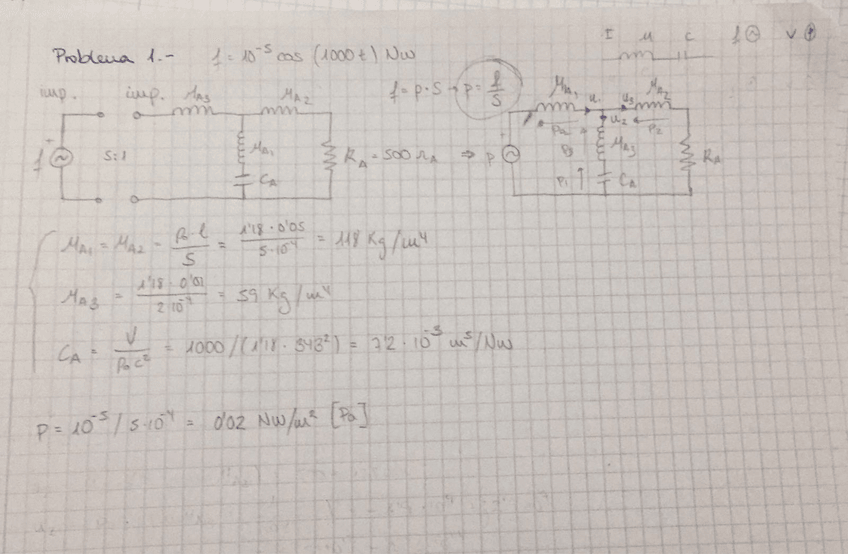 I M C f V
Problema 1.- f = 10⁻⁵ cos (1000t) Nw
imp. imp. M_A3 M_A2 f = p·S → p = f/S M_A1 u₁ u₃ M_A2
f S:1 M_A1 C_A R_A = 500 Ω_A ⇒ p u₂ P₂ M_A3 P₁ C_A R_A
M_A1 = M_A2 = ρ₀·l / S = 1'18 · 0'05 / 5·10⁻⁴ = 118 Kg/m⁴
M_A3 = 1'18 · 0'01 / 2·10⁻⁴ = 59 Kg/m⁴
C_A = V / ρ₀c² = 1000/(1'18 · 343²) = 7'2 · 10⁻³ m⁵/Nw
P = 10⁻⁵ / 5·10⁻⁴ = 0'02 Nw/m² [Pa]